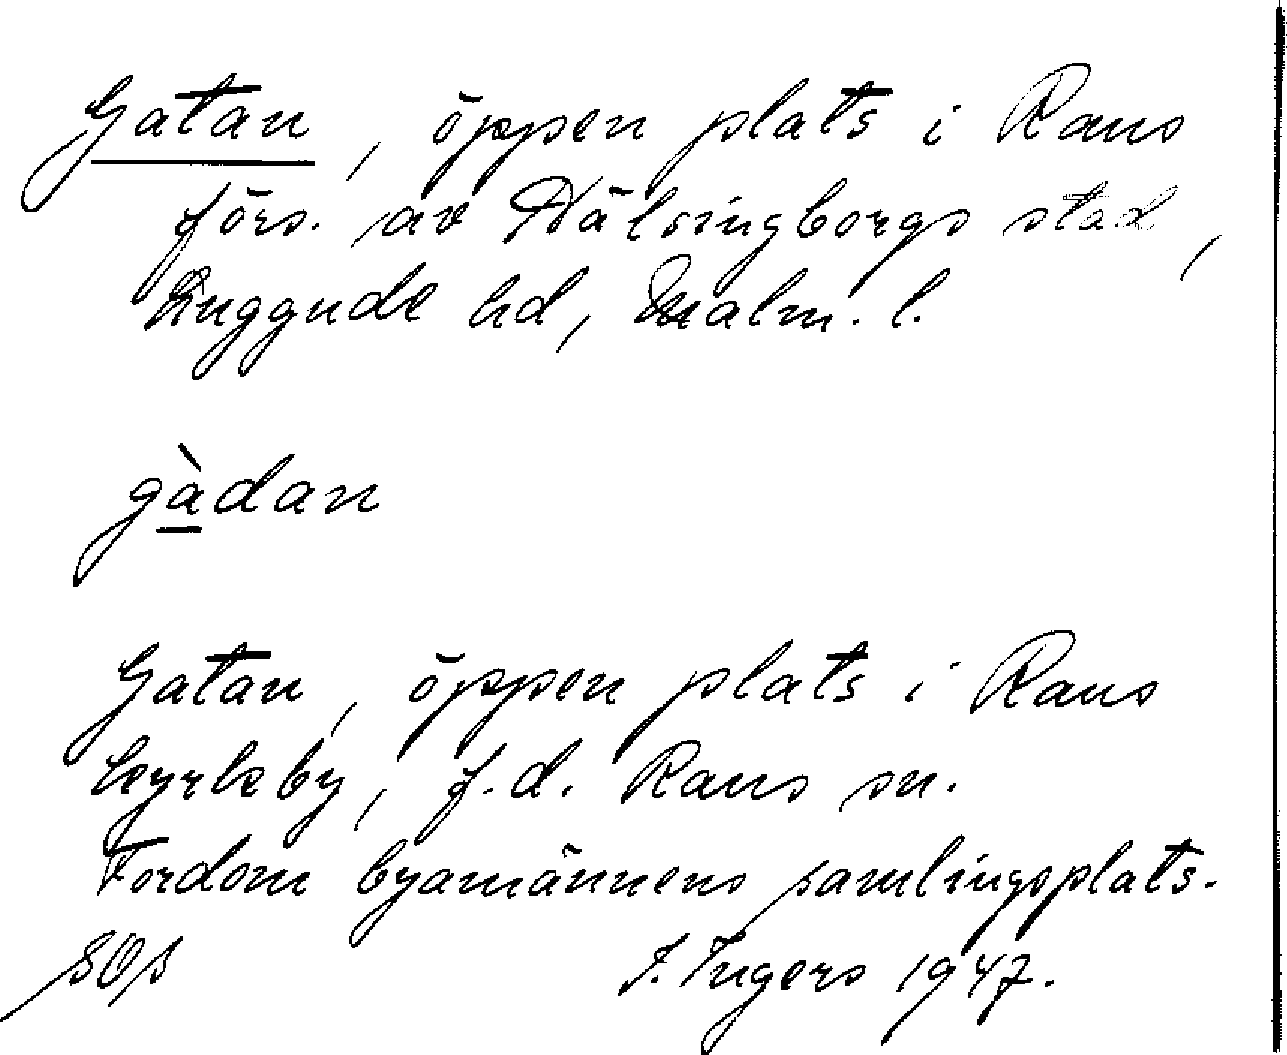 Gatan, öppen plats i Raus
förs. av Hälsingborgs stad,
Luggude hd, Malm. l.
gàdan
Gatan, öppen plats i Raus
kyrkby, f.d. Raus sn.
Fordom byamännens samlingsplats.
SOs I. Ingers 1947.